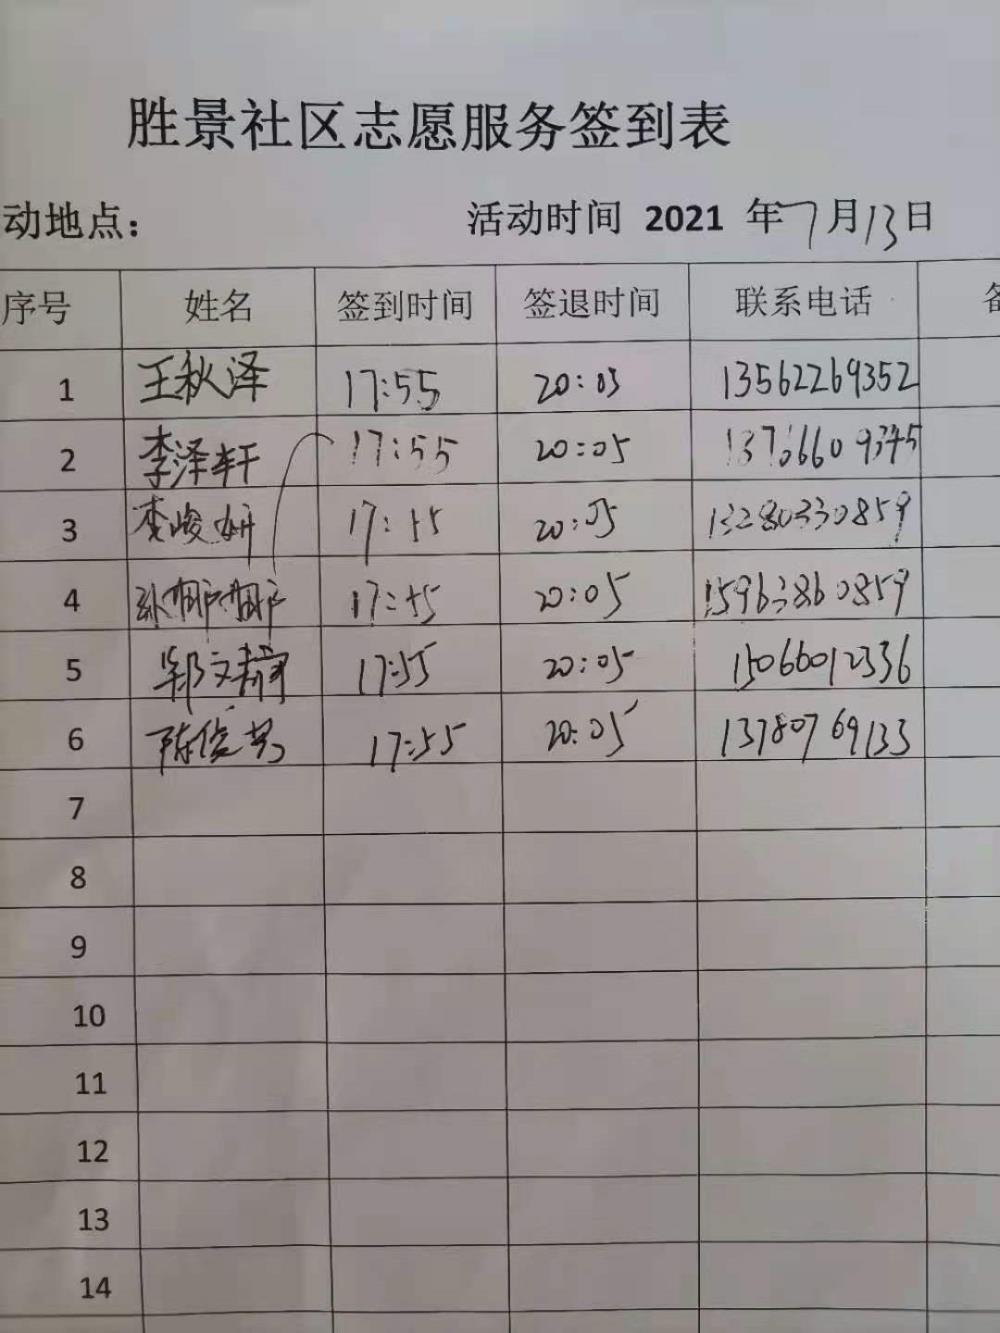 胜景社区志愿服务签到表
动地点： 活动时间 2021 年7月13日
序号 姓名 签到时间 签退时间 联系电话
1 王秋泽 17:55 20:05 13562269352
2 李泽轩 17:55 20:05
3 李峻妍 17:55 20:05 13280330859
4 孙娜娜 17:55 20:05 15963860859
5 郑文静 17:55 20:05 15066012336
6 陈俊芳 17:55 20:05 13780769133
7
8
9
10
11
12
13
14